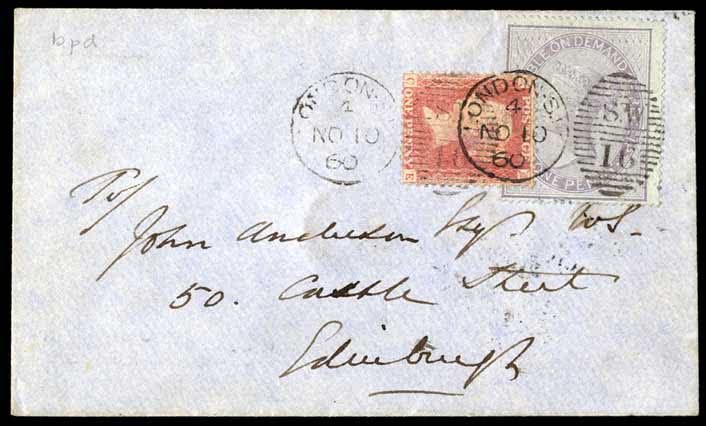 bpd
LONDON.S.W
4
NO 10
60
ONE PENNY
C
E
LONDON.S.W
4
NO 10
60
ABLE ON DEMAND
ONE PEN
SW
16
To/
John Anderson Esqr. W.S.
50. Castle Street
Edinburgh